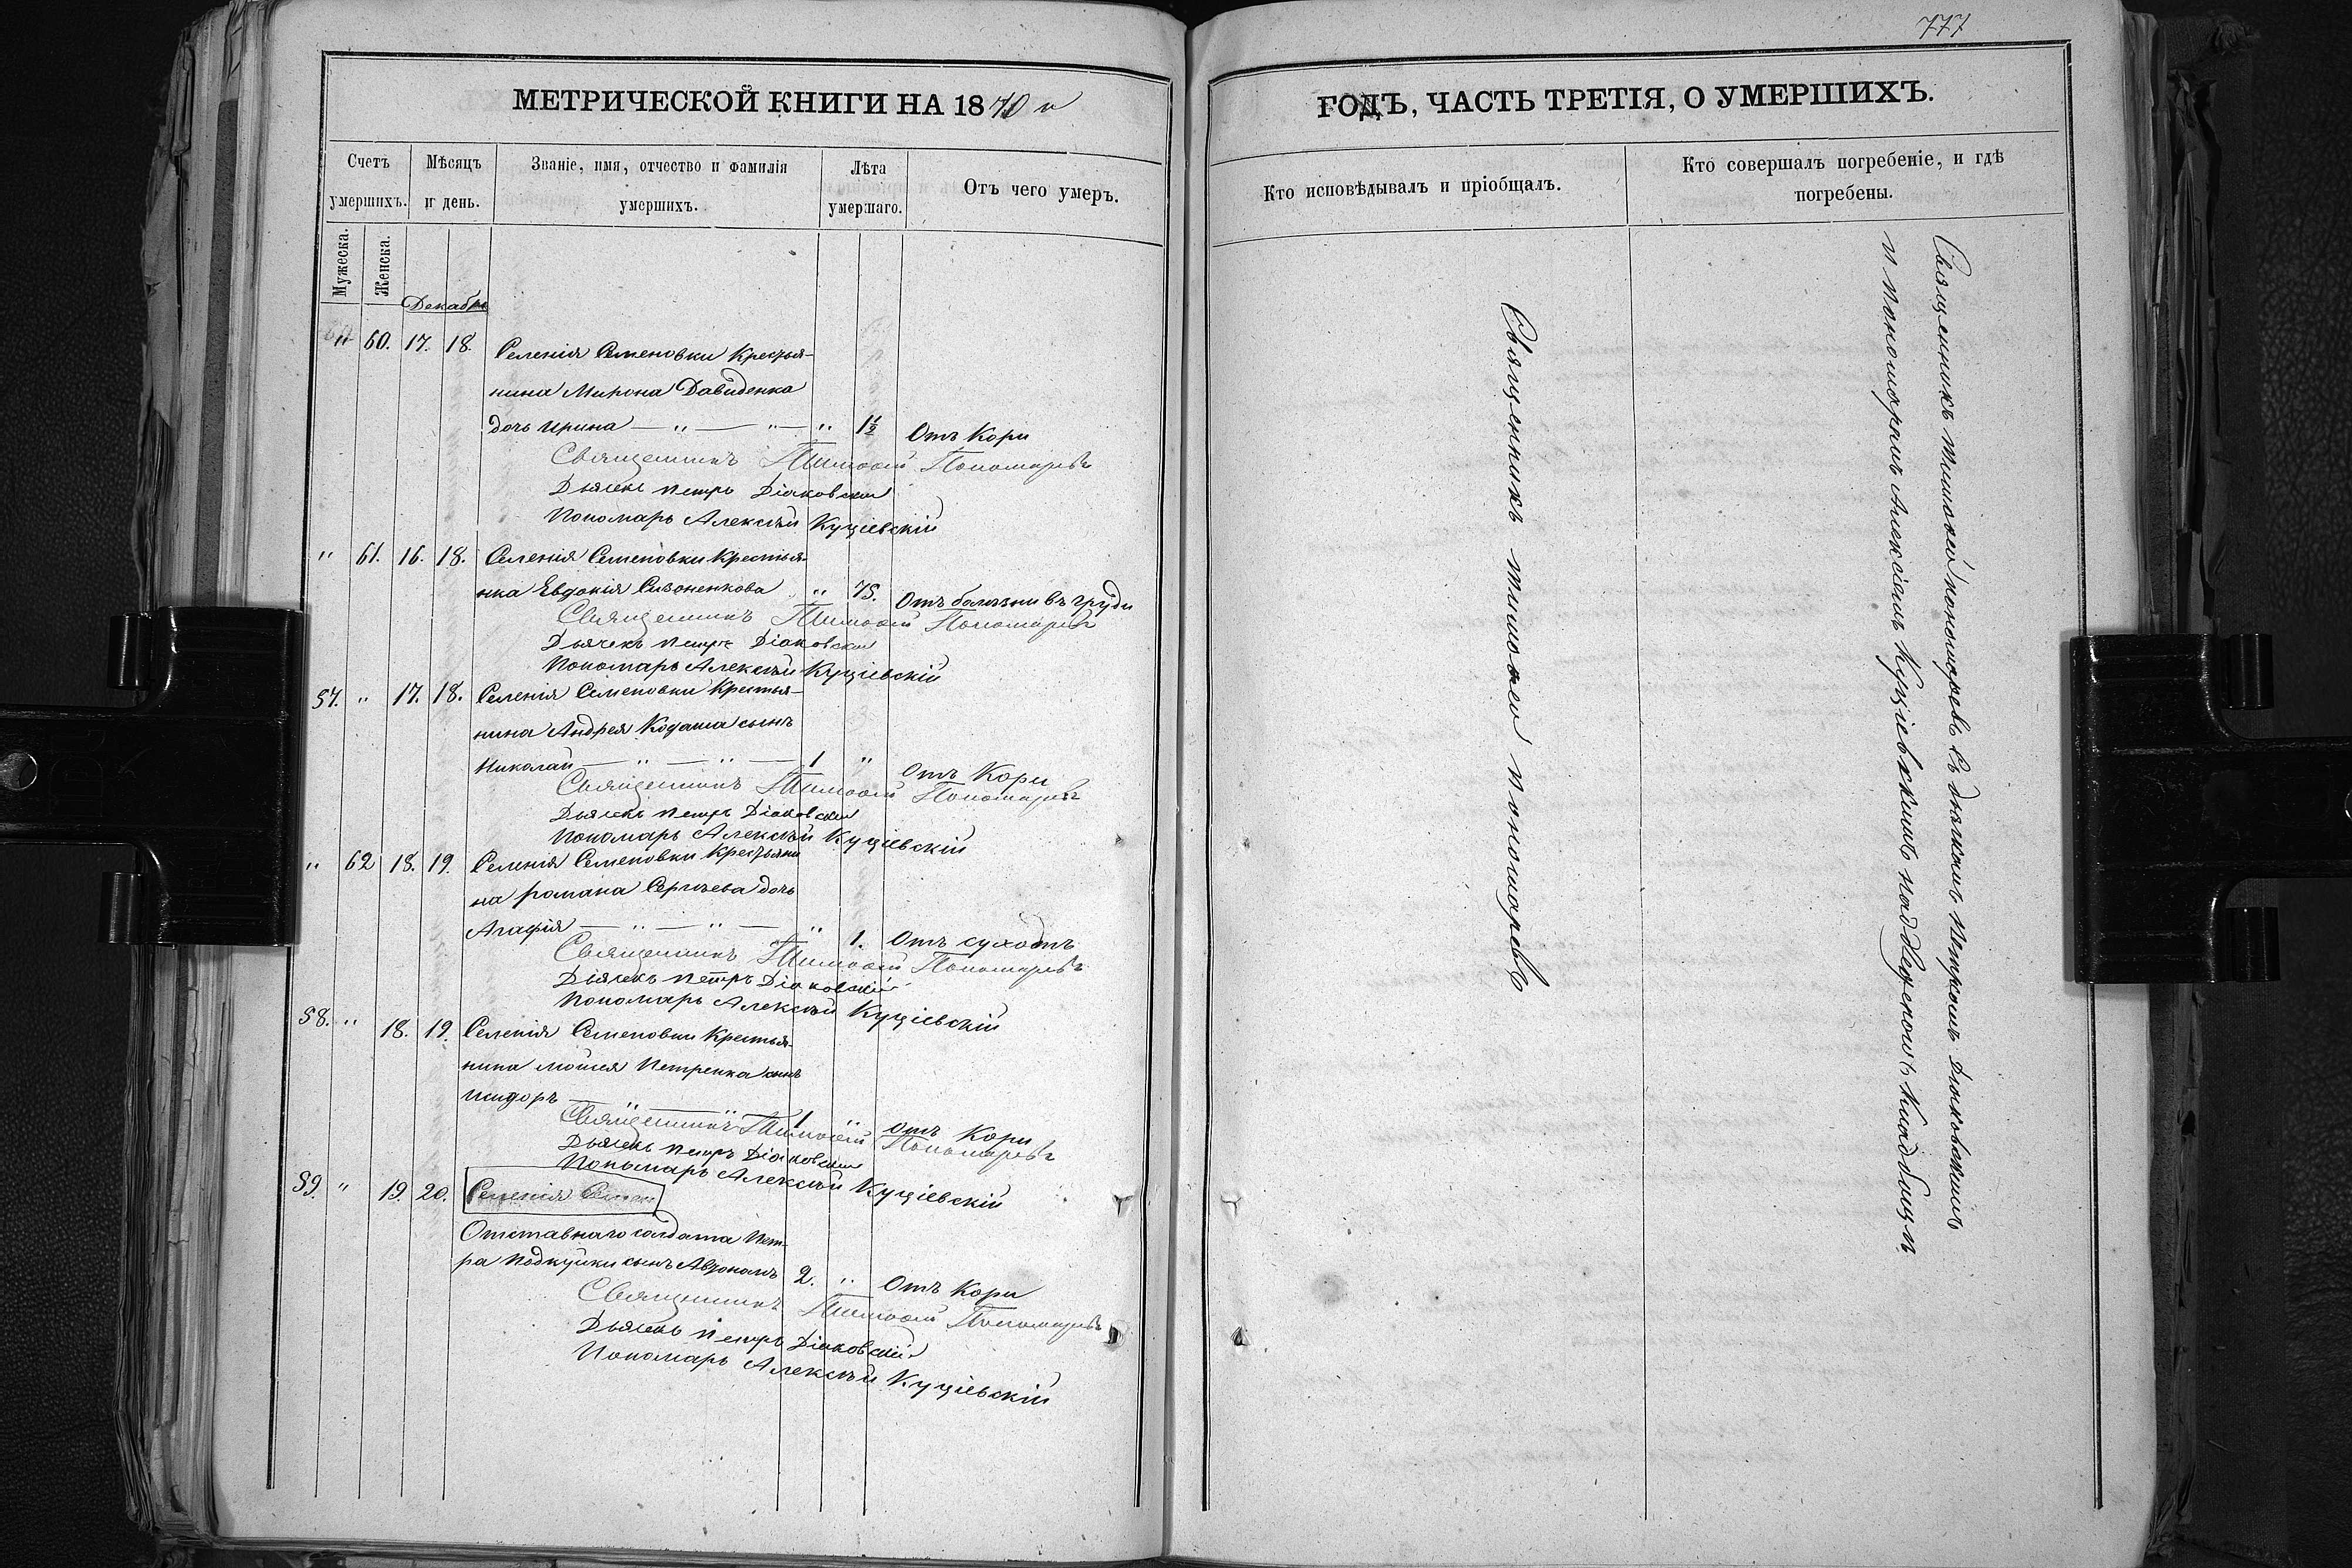 777
МЕТРИЧЕСКОЙ КНИГИ НА 1870 й
ГОДЪ, ЧАСТЬ ТРЕТІЯ, О УМЕРШИХЪ.
Счетъ умершихъ.
Мужеска.
Женска.
Мѣсяцъ и день.
Званіе, имя, отчество и фамилія умершихъ.
Лѣта умершаго.
Отъ чего умеръ.
Кто исповѣдывалъ и пріобщалъ.
Кто совершалъ погребеніе, и гдѣ погребены.
Декабрь
" 60. 17. 18. Селенія Семеновки Крестья-
нина Мирона Давиденка
дочь Ирина — " — " — " 1½ Отъ Кори
Священникъ Тимоѳей Пономаревъ
Дьячекъ Петръ Діаковскій
Пономарь Алексѣй Куціевскій
" 61. 16. 18. Селенія Семеновки Крестья-
нка Евдокія Сизоненкова " 75. Отъ болѣзни въ груди
Священникъ Тимоѳей Пономаревъ
Дьячекъ Петръ Діаковскій
Пономарь Алексѣй Куціевскій
57. " 17. 18. Селенія Семеновки Крестья-
нина Андрея Кодаша сынъ
Николай — " — " — 1 " Отъ Кори
Священникъ Тимоѳей Пономаревъ
Дьячекъ Петръ Діаковскій
Пономарь Алексѣй Куціевскій
" 62 18. 19. Селенія Семеновки Крестьяни
на Романа Сергѣева дочь
Агафія — " — " — " 1. Отъ сухотъ
Священникъ Тимоѳей Пономаревъ
Дьячекъ Петръ Діаковскій
Пономарь Алексѣй Куціевскій
58. " 18. 19. Селенія Семеновки Крестья-
нина Мойсея Петренка сынъ
Исидоръ — " — " 1 " Отъ Кори
Священникъ Тимоѳей Пономаревъ
Дьячекъ Петръ Діаковскій
Пономарь Алексѣй Куціевскій
59. " 19. 20. Селенія Семен
Отставнаго солдата Пет-
ра Подкуйки сынъ Автономъ 2. " Отъ Кори
Священникъ Тимоѳей Пономаревъ
Дьячекъ Петръ Діаковскій
Пономарь Алексѣй Куціевскій
Священникъ Тимоѳей Пономаревъ
Священникъ Тимоѳей Пономаревъ съ дьячкомъ Петромъ Діаковскимъ
и пономаремъ Алексѣемъ Куціевскимъ на кладбищѣ